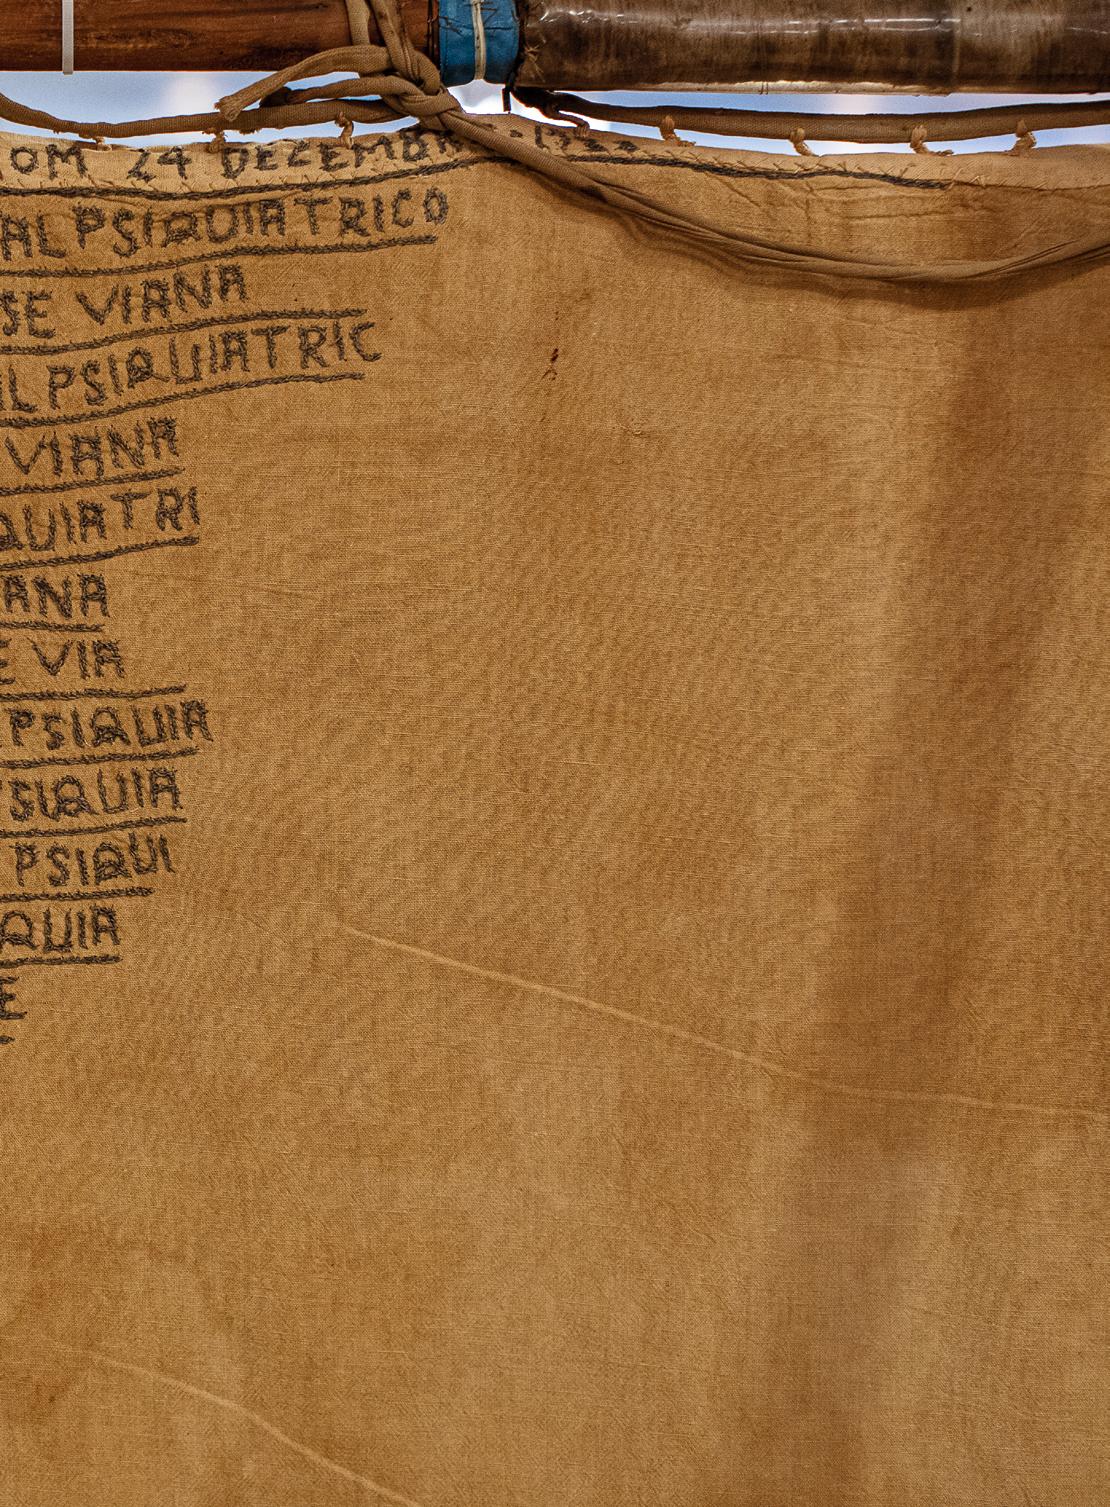 OM 24 DECEMBR
AL PSIQUIATRICO
SE VIANA
L PSIQUIATRIC
VIANA
QUIATRI
ANA
E VIA
PSIQUIA
SIQUIA
PSIQUI
QUIA
E